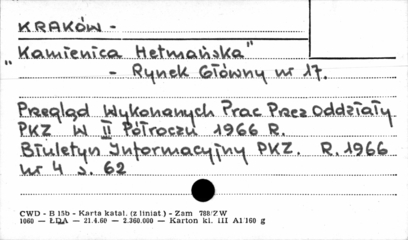 KRAKÓW -
"Kamienica Hetmańska"
- Rynek Główny nr 17.
Przegląd Wykonanych Prac Przez Oddziały
PKZ W II Półroczu 1966 R.
Biuletyn Informacyjny PKZ. R. 1966
nr 4 s. 62
CWD - B 15b - Karta katal. (z liniat) - Zam 788/ZW
1060 — ŁDA — 21.4.60 — 2.360.000 — Karton kl. III A1 160 g